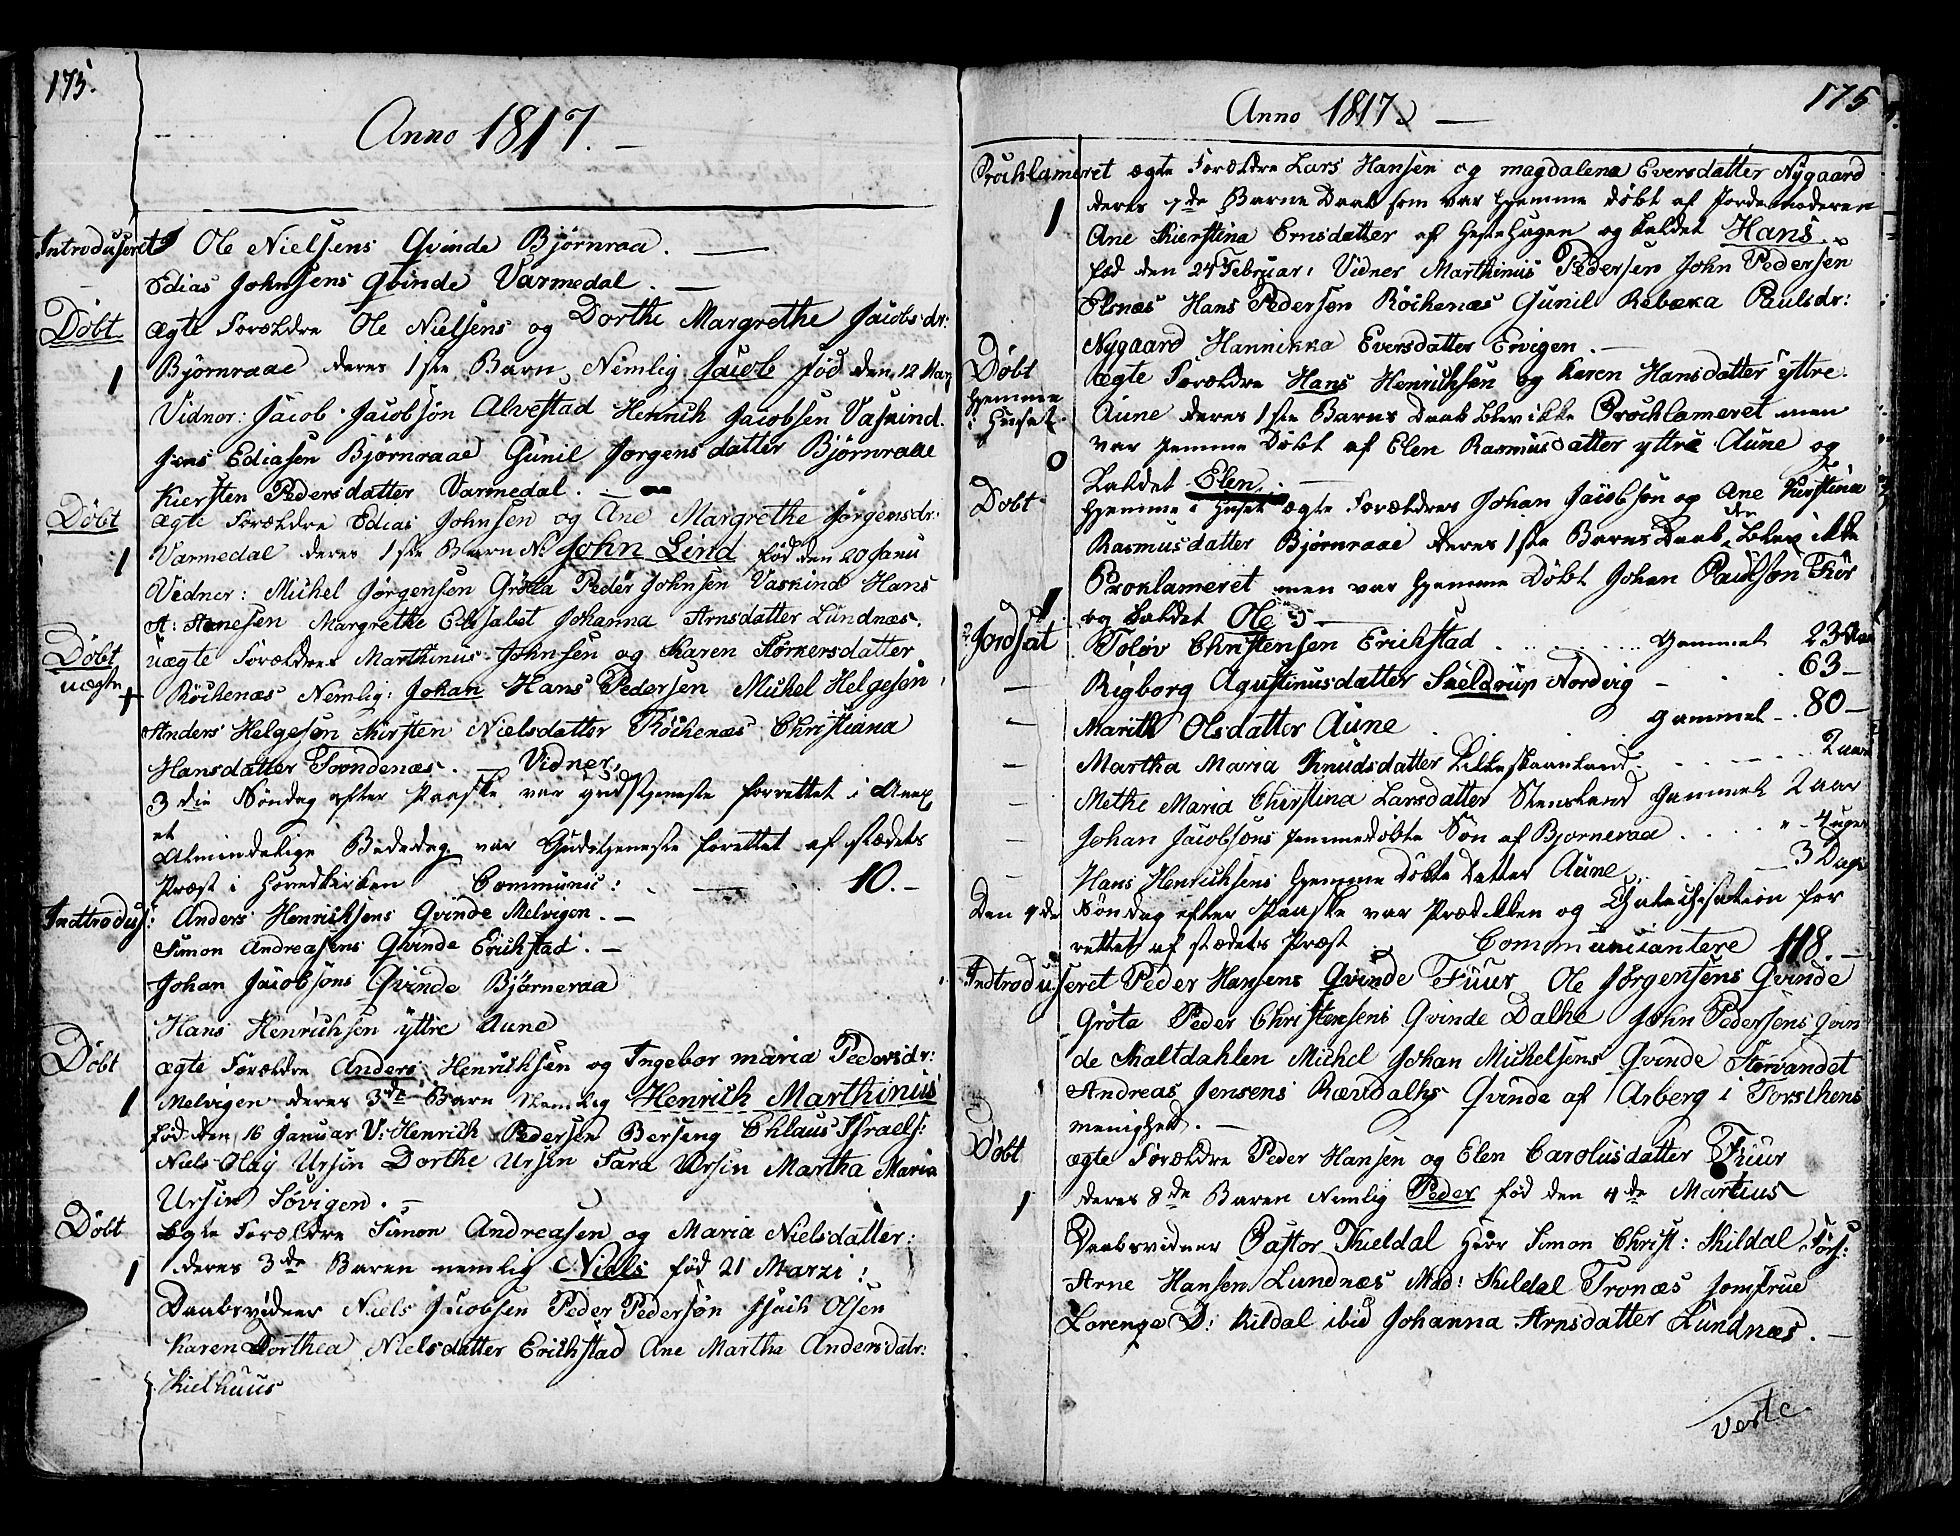 175.
Anno 1817. —
Introduseret Ole Nielsens Qvinde Bjørnraa. —
Edias Johnsens Qvinde Varmedal. —
Døbt ægte Forældre Ole Nielsens og Dorthe Margrethe Jacobsdr:
1 Bjørnraae deres 1ste Barn Nemlig Jacob fød den 12 Marz
Vidner: Jacob Jacobsøn Alvestad Henrich Jacobsen Vaskind.
Jens Ediasen Bjørnraae Gunil Jørgensdatter Bjørnraae
Kiersten Pedersdatter Varmedal. —
Døbt ægte Forældre Edias Johnsen og Ane Margrethe Jørgensdr:
1 Varmedal deres 1ste Barn N: John Lind fød den 20 Janu
Vidner: Michel Jørgensen Grøtta Peder Johnsen Vaskind Hans
A: Arnesen Margrethe Elisabet Johanna Arnsdatter Lundnæs.
Døbt uægte Forældres Marthinus Johnsen og Karen Tørkersdatter
uægte + Røchenæs Nemlig: Johan Hans Pedersen Michel Helgesen
Anders Helgesøn Kirsten Nielsdatter Røchenæs Christiana
Hansdatter Tovndenæs. — Vidner,
3die Søndag efter Paaske var gudstjeneste forrettet i Anex
et
Almindelige Bededag var Gudstjeneste forettet af stædets
Præst i Hovedkirken Communic: — 10. —
Indtrodus: Anders Henrichsens Qvinde Melvigen. —
Simon Andreasens Qvinde Erichstad. —
Johan Jacobsøns Qvinde Bjørneraa
Hans Henrichsen yttre Aune
Døbt ægte Forældre Anders Henrichsen og Ingebor maria Pedersdr:
1 Melvigen deres 3de Barn Nemlig Henrich Marthinus
fød den 16 Januar V: Henrich Pedersen Berseng Chlaus Israels:
Niels Olay Ursin Dorthe Ursin Sara Ursin Martha Maria
Ursin Søvigen. —
Døbt Ægte Forældre Simon Andreasen og Maria Nielsdatter:
1 deres 3de Baren nemlig Niels fød 21 Marzi:
Daabsvidner Niels Jacobsen Peder Pedersøn Isach Olsen
Karen Dorthea Nielsdatter Erichstad Ane Martha Andersdatr:
Kielhuus
175
Anno 1817 —
Prochlameret ægte Forældre Lars Hansen og magdalena Eversdatter Nygaard
1 deres 7de Barne Daab som var hjemme døbt af Jordemoderen
Ane Kierstina Ernsdatter af Hestehugen og kaldet Hans
fød den 24 Februar: Vidner Marthinus Pedersen John Pedersen
Elsnæs Hans Pedersen Røchenæs Gunil Rebæka Paulsdr:
Nygaard Hannikka Eversdatter Ervigen. —
Døbt ægte Forældre Hans Henrichsen og Karen Hansdatter yttre
hjemme Aune deres 1ste Barns Daab blev ikke Prochlameret men
i Huset var hjemme Døbt af Elen Rasmusdatter yttre Aune og
0 kaldet Elen. —
Døbt hjemme i Huset ægte Forældres Johan Jacobsøn og Ane Kirstina
Rasmusdatter Bjørnraae deres 1ste Barns Daab blev ikke
Proklameret men var hjemme Døbt Johan Paulsøn Fur
1 og kaldet Ole —
Jordsat Toløv Christensen Erichstad . . . . gammel 23 Aar
— Rigborg Agustinusdatter Skeldrup Nordvig — 63 —
— Marith Olsdatter Aune gammel - 80 —
— Martha Maria Knudsdatter Lilleskaanland. 2 aar
— Methe Maria Christina Larsdatter Stensland gammel 2 aar
— Johan Jacobsøns hjemmedøbte Søn af Bjorneraa . . . . 4 uger
— Hans Henrichsens hjemme Døbte Datter Aune — 3 Dage
Den 4de Søndag efter Paaske var Prædikken og Chatechisation for
rettet af stædets Præst Communicantere 118. —
Indtroduseret Peder Hansens Qvinde Fuur Ole Jørgensens Qvinde
Grøte Peder Christensens Qvinde Dalhe John Pedersens Qvin
de Skaltdahlen Michel Johan Michelsens Qvinde Storvandet
Andreas Jensens Rævdalhs Qvinde af Arberg i Torschens
menighed. —
Døbt ægte Forældre Peder Hansen og Elen Carolusdatter Fuur
1 deres 8de Baren Nemlig Peder fød den 4de Martius
Daabsvidner Pastor Kieldal Herr Simon Christ: Kildal Tors:
Arne Hansen Lundnæs Mad: Kildal Tronæs Jomfrue
Lorenze D: Kildal ibid Johanna Arnsdatter Lundnæs. —
verte